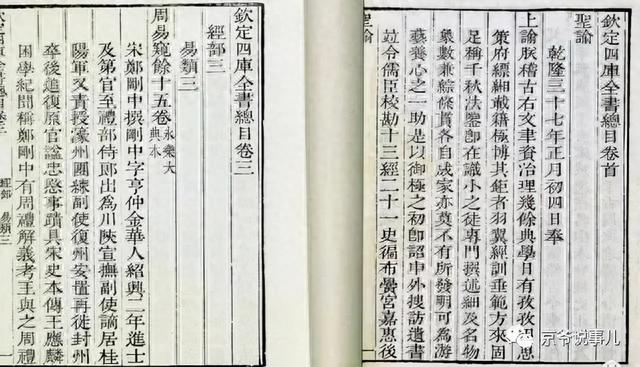 欽定四庫全書總目卷首
聖諭
乾隆三十七年正月初四日奉
上諭朕稽古右文聿資治理幾餘典學日有孜孜因思
策府縹緗載籍極博其鉅者羽翼經訓垂範方來固
足稱千秋法鑒卽在識小之徒專門撰述細及名物
象數兼綜條貫各自成家亦莫不有所發明可為游
藝養心之一助是以御極之初卽詔中外搜訪遺書
竝令儒臣校勘十三經二十一史徧布黌宮嘉惠後
聖諭
欽定四庫全書總目卷三
經部三
易類三
周易窺餘十五卷永樂大典本
宋鄭剛中撰剛中字亨仲金華人紹興二年進士
及第官至禮部侍郎出為川陝宣撫副使謫居桂
陽軍又責授濠州團練副使復州安置再徙封州
卒後追復原官諡忠愍事蹟具宋史本傳王應麟
困學紀聞稱鄭剛中有周禮解義考王與之周禮
經部 易類三
京爷说事儿